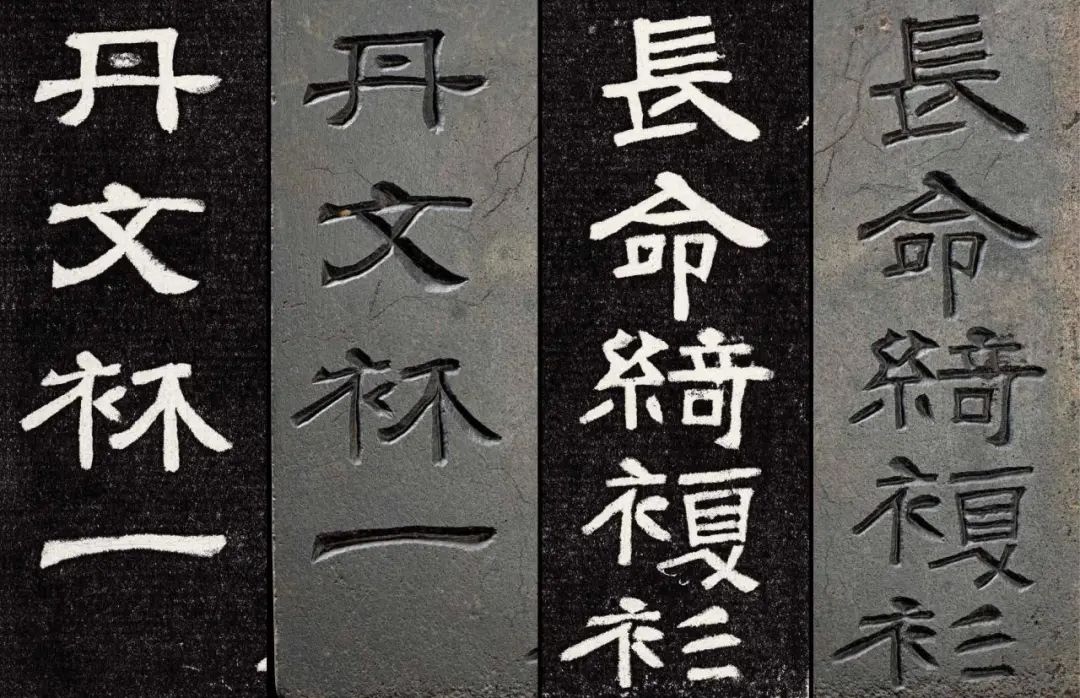 長命綺複衫
長命綺複衫
丹文一
丹文一